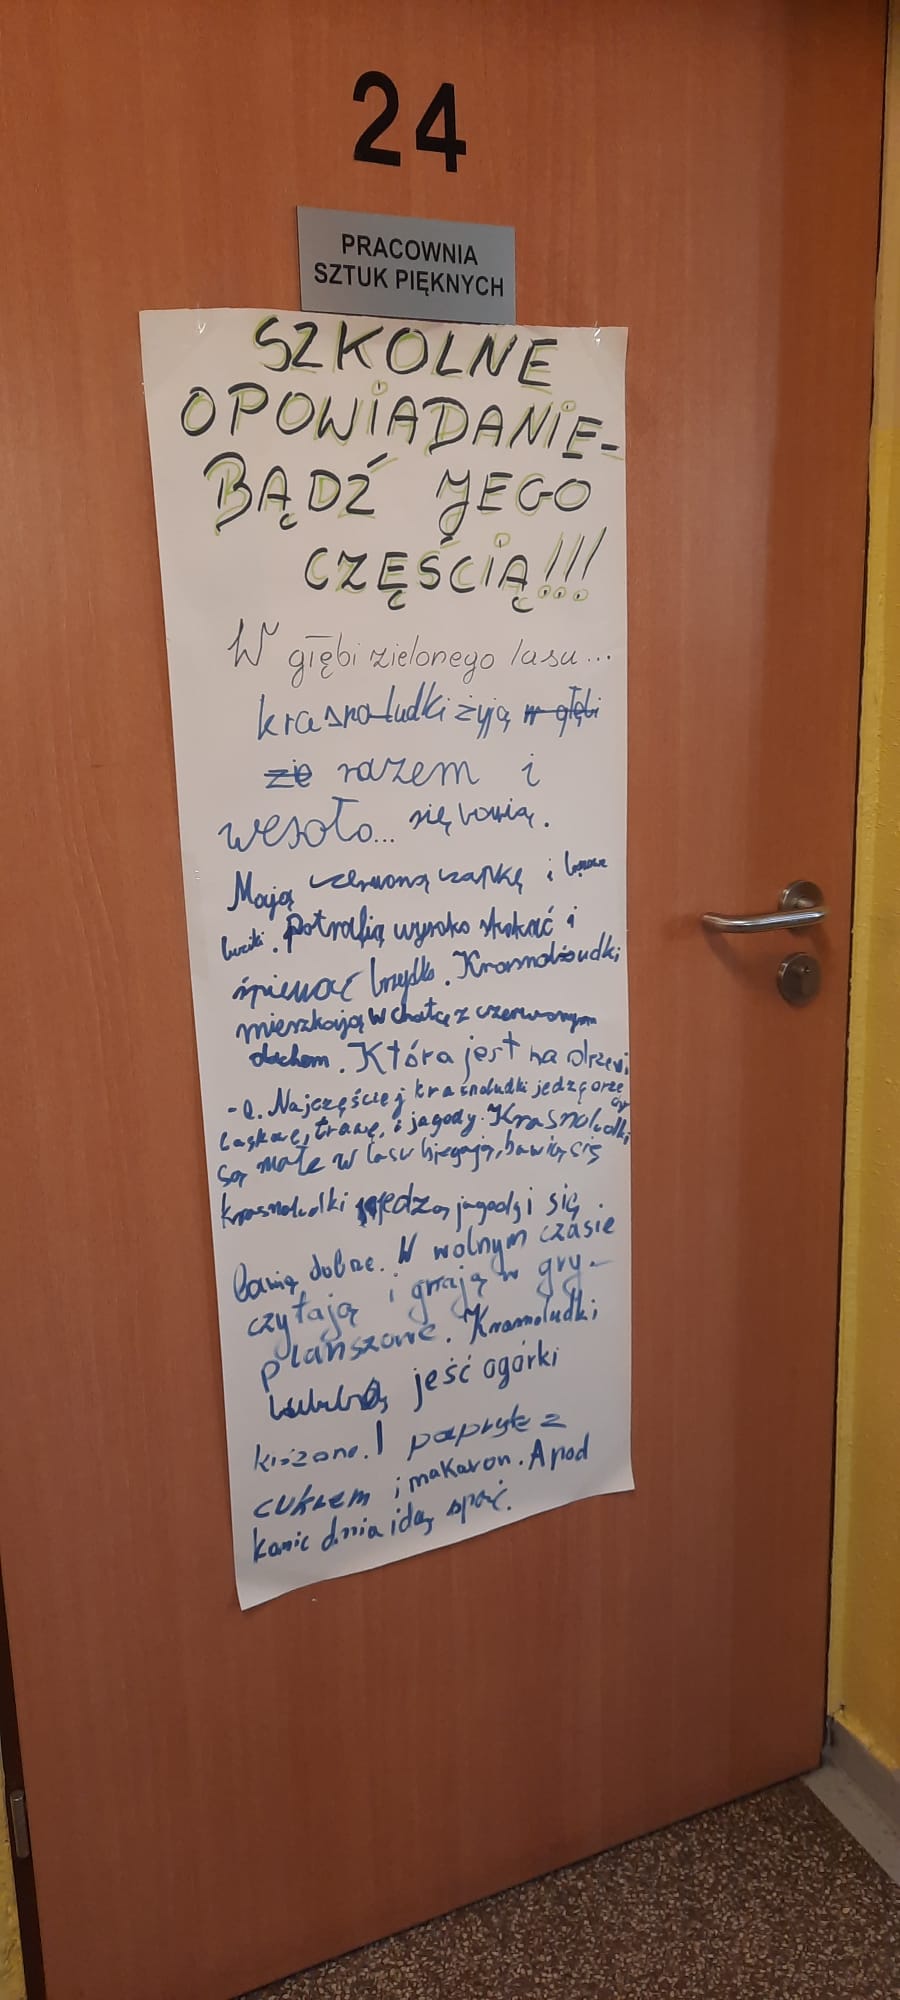 24
PRACOWNIA
SZTUK PIĘKNYCH
SZKOLNE
OPOWiADANiE-
BĄDŹ JEGO
CZĘŚCiĄ!!!
W głębi zielonego lasu...
krasnoludki żyją w głębi
zie razem i
wesoło... się bawią.
Mają czerwoną czapkę i
buciki. Potrafią wysoko skakać i
śpiewać brzydko. Krasnoludki
mieszkają w chatce z czerwonym
dachem. Która jest na drzewi
-e. Najczęściej krasnoludki jedzą orze
chy
laskowe, trawę, i jagody. Krasnoludki
są małe w lasu biegają, bawią się
krasnoludki jedzą jagody i się
bawią dobrze. W wolnym czasie
czytają i grają w gry-
planszowe. Krasnoludki
jeść ogórki
kiszone. I papryke z
cukrem i makaron. A pod
konic dnia idą spać.